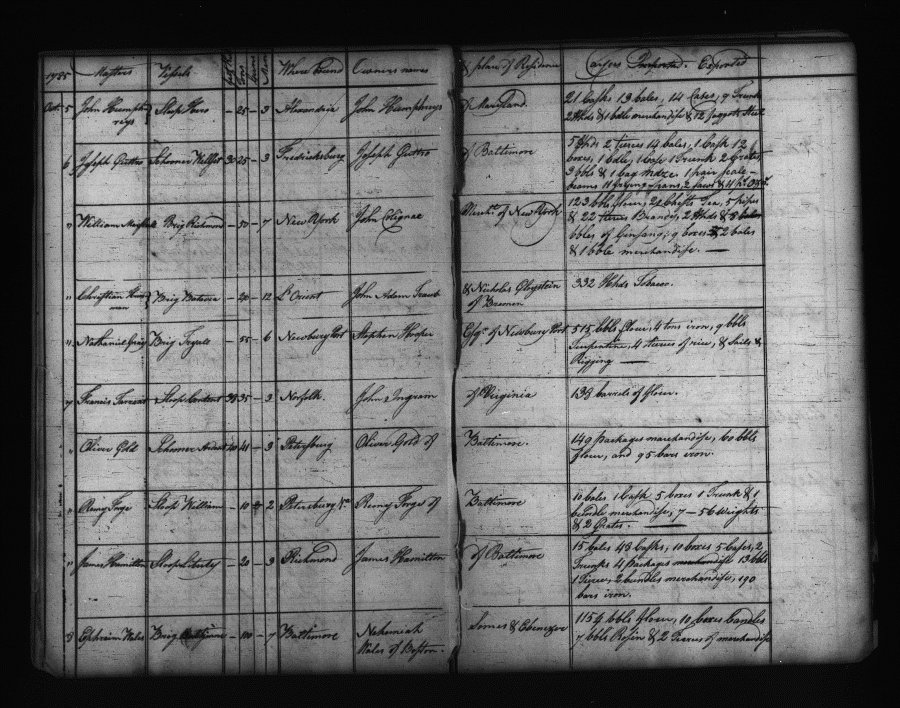 1785 Masters Vessels Tons Men Where bound Owners names & place of Residence Cargoes Exported
Octr. 5 John Humph Sloop Hero — 25 — 3 Alexandria John Humphreys of Maryland. 21 Casks 13 bales, 14 Cases, 9 Trunks
reys 2 Hhds & 1 bdle merchandise & 12 faggots Steel
6 Joseph Schooner 30 25 — 3 Fredericksburg Joseph of Baltimore 5 Hhds 2 tierces 14 bales, 1 Cask 12
boxes, 1 bdle, 1 Case 1 Trunk 2 Crates
3 bbls & 1 bag mdze 1 pair scale-
beams 11 frying pans, 2 saws &
" William Brig Richmond — 50 — 7 New York John Colignac Mercht. of New York 123 bbls flour, 22 Chests Tea, 5 pipes
& 22 Brandy, 2 Hhds &
bbles of Ginsang; 9 boxes 2 bales
& 1 bble merchandise. —
" Christian Brig Batavia — 20 — 12 L'Orient John Adam & Nicholas 332 Hhds Tobacco.
man of Bremen
" Nathaniel Brig Tryall — 55 — 6 Newbury Port Stephen Hooper Esqr. of Newbury Port 515 bbls flour, 4 tons iron, 9 bbls
Turpentine, 4 tierces of rice, & Sails &
Rigging —
7 Francis Sloop 35 — 3 Norfolk. John Ingram of Virginia 139 barrels of flour.
" Oliver Gold Schooner — 3 Petersburg Oliver Gold of Baltimore. 149 packages merchandise, 60 bbls
flour, and 95 bars iron.
" Remy Forge Sloop William — 10 2 Petersburg Va. Remy Forge of Baltimore 10 bales 1 Cask 5 boxes 1 Trunk & 1
bundle merchandise, 7 — 56 Weights
& 2 Crates. —
" James Hamilton Sloop Liberty — 20 — 3 Richmond James Hamilton of Baltimore 15 bales 43 Casks, 10 boxes 5 Cases, 2
Trunks 4 packages merchandise 13 bbls
1 Tierce, 2 bundles merchandise, 190
bars iron.
8 Ephraim Wales Brig — 100 — 7 Baltimore Nehemiah Somes & Ebenezer 115 bbls flour, 10 boxes Candles
Wales of Boston. 7 bbls Rosin & 2 Tierces of merchandise